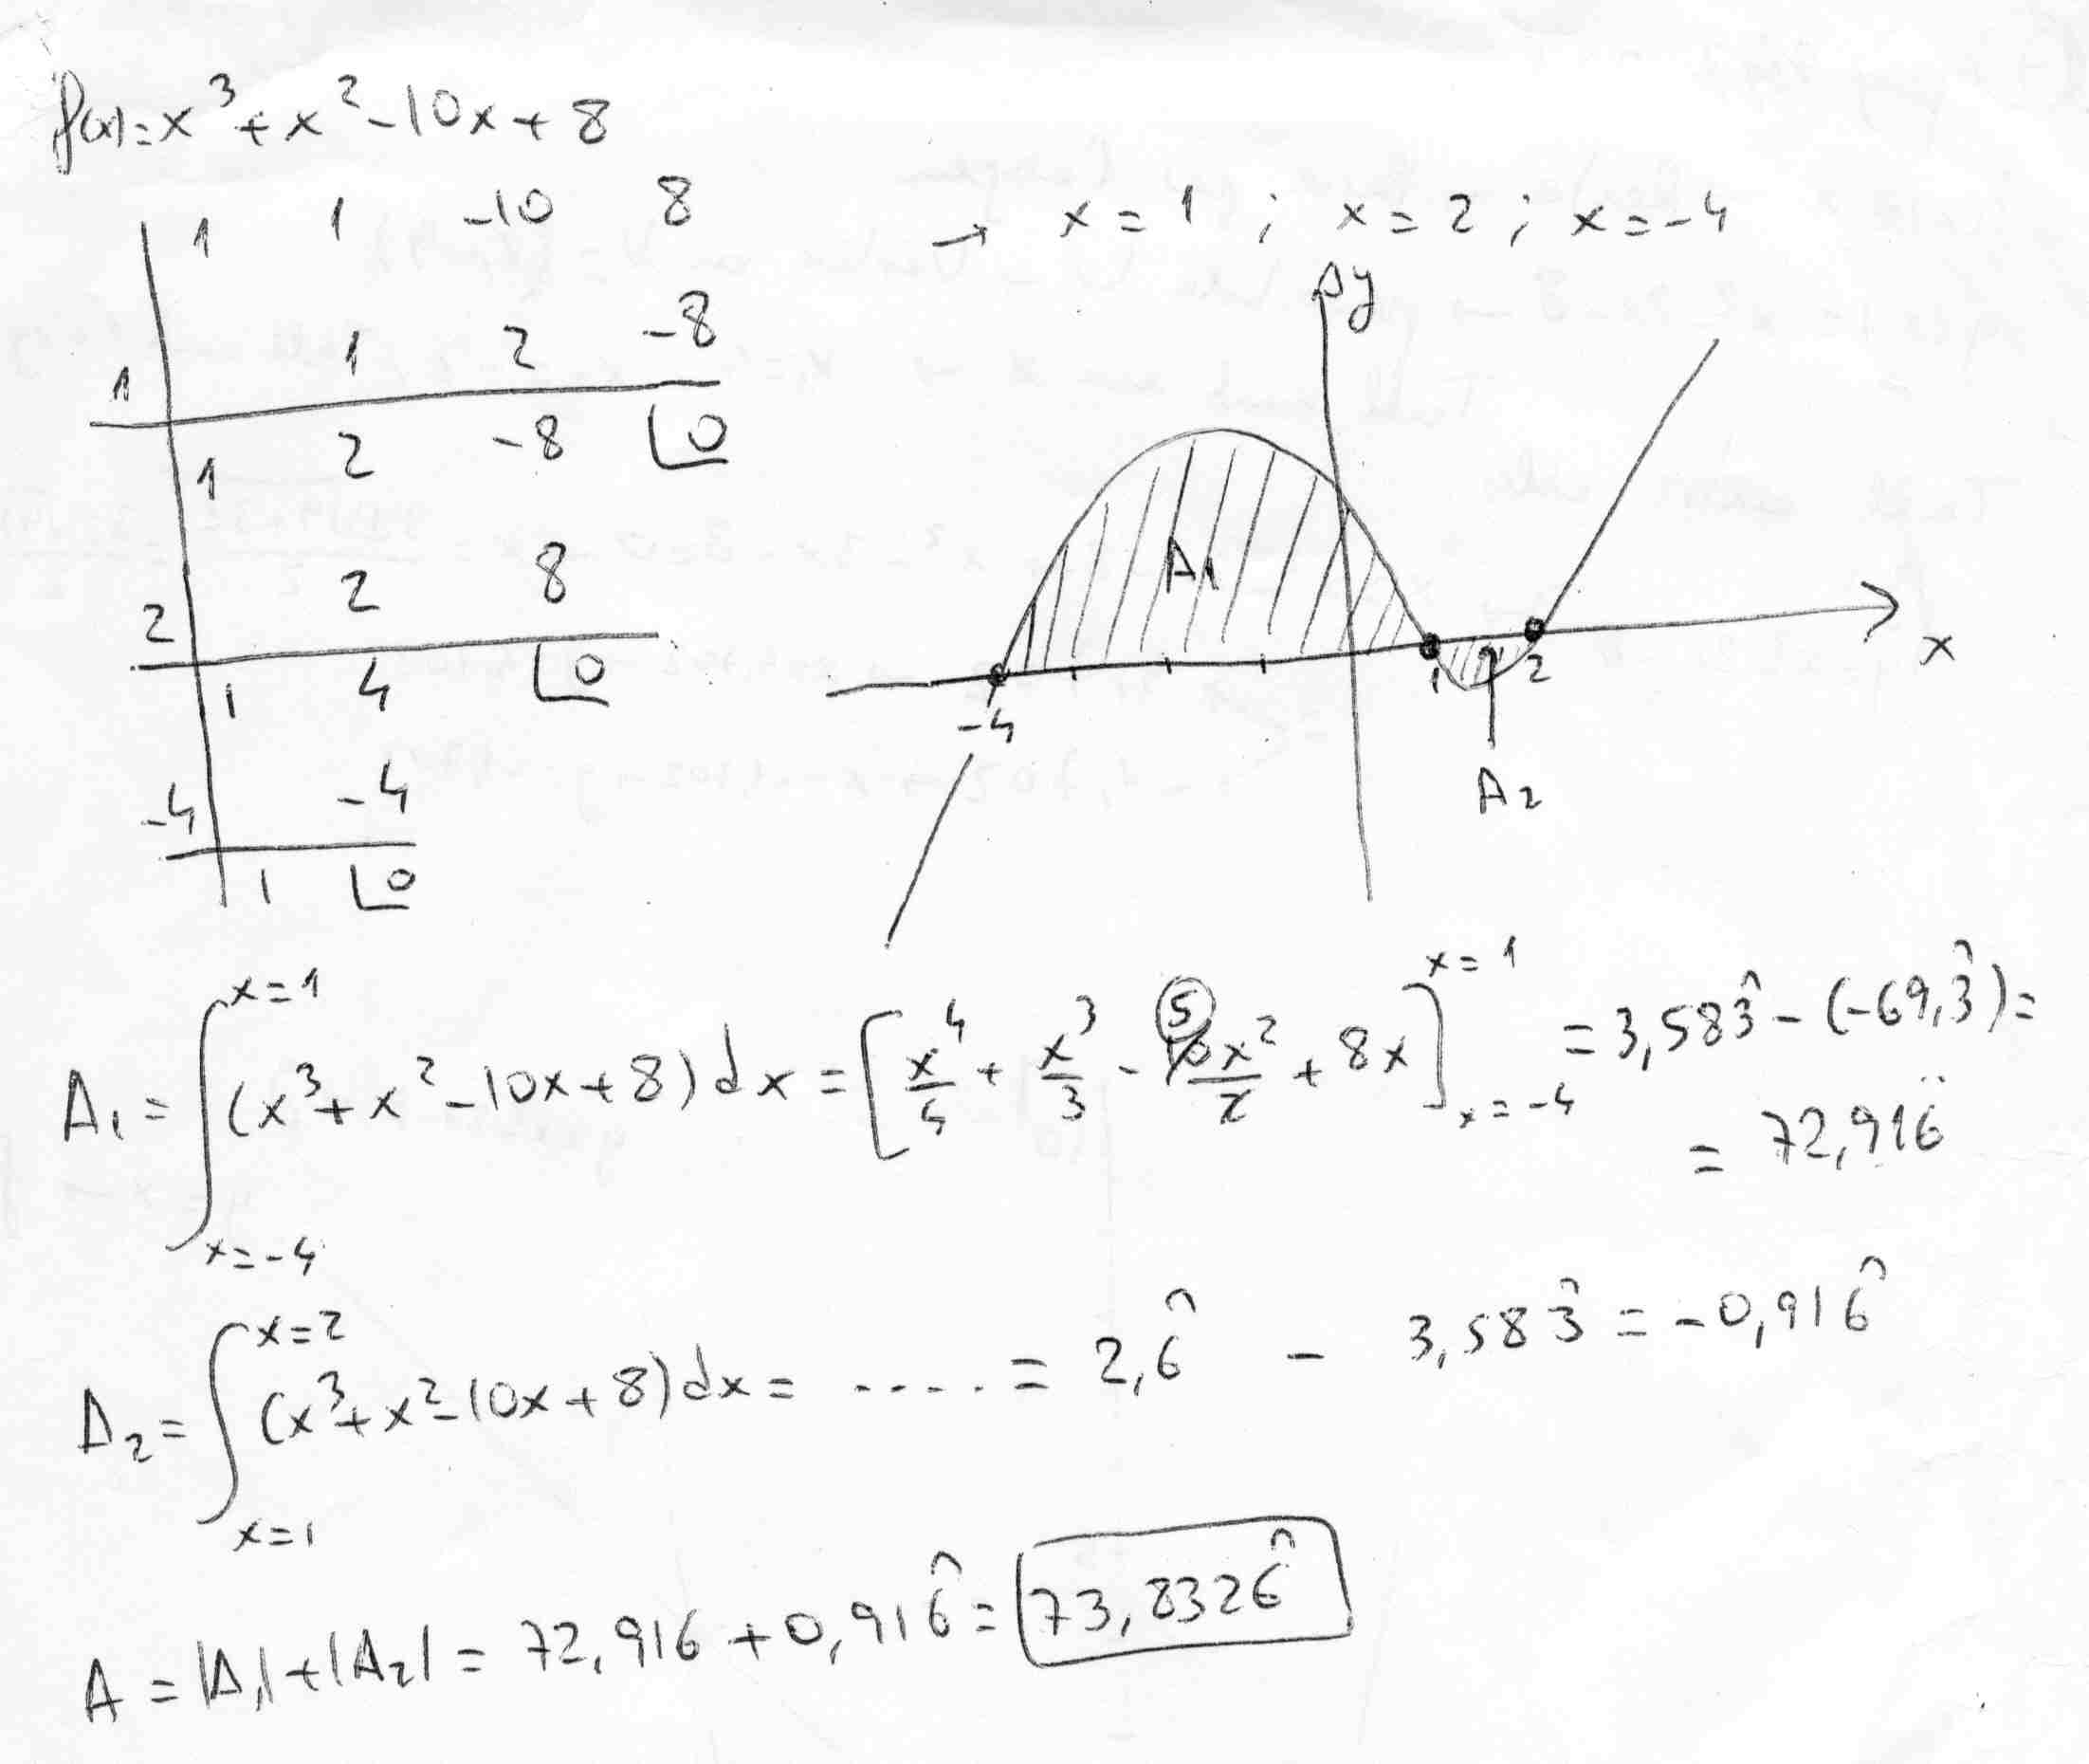 f(x)=x³+x²-10x+8
1 1 -10 8
1 1 2 -8
1 2 -8 0
2 2 8
1 4 0
-4 -4
1 0
→ x=1 ; x=2 ; x=-4
y
A1
-4 1 2 x
A2
A₁ = ∫_{x=-4}^{x=1} (x³+x²-10x+8)dx = [x⁴/4 + x³/3 - 10x²/2 + 8x]_{x=-4}^{x=1} = 3,583̂ - (-69,3̂) =
5
= 72,916̂
A₂ = ∫_{x=1}^{x=2} (x³+x²-10x+8)dx = ..... = 2,6̂ - 3,583̂ = -0,916̂
A = |A₁|+|A₂| = 72,916 + 0,916̂ = 73,8326̂